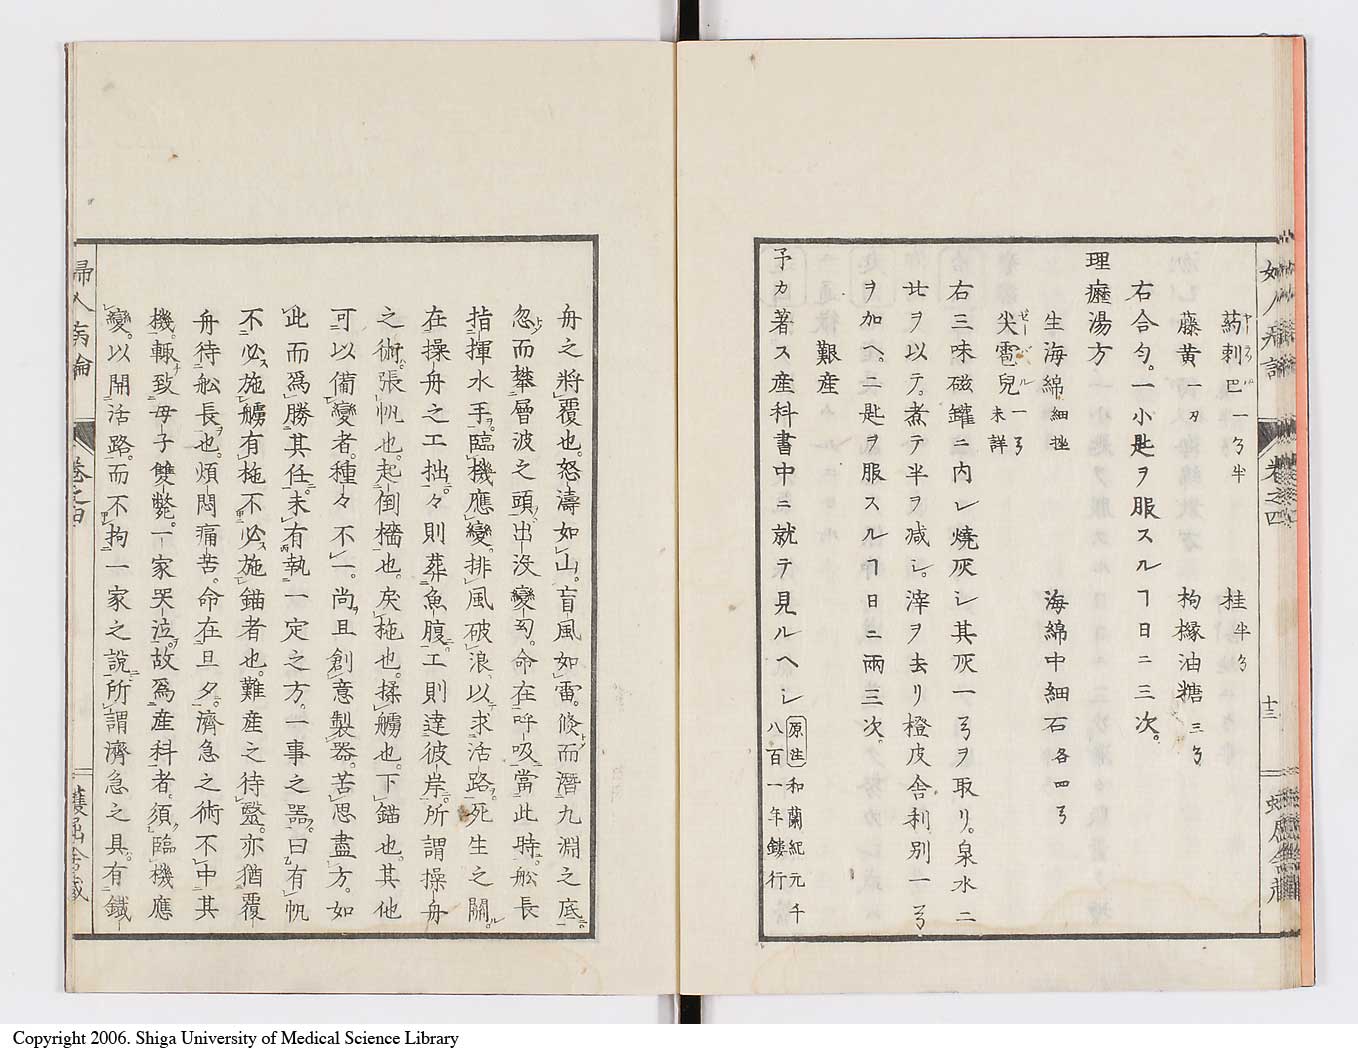 葯刺巴一ｦ半　桂半ｦ
藤黄一刄　枸櫞油糖三ｦ
右合匀。一小匙ヲ服スルヿ日ニ三次。
理癧湯方
生海綿細挫　海綿中細石各四ｦ
尖雹兒一ｦ未詳
右三味磁罐ニ内レ燒灰シ其灰一ｦヲ取リ。泉水二
廿ヲ以テ。煮テ半ヲ減シ。滓ヲ去リ橙皮舎利別一ｦ
ヲ加ヘ。二匙ヲ服スルヿ日ニ兩三次。
艱産
予カ著ス産科書中ニ就テ見ルヘシ原注和蘭紀元千
八百一年鏤行
十三
舟之將覆也。怒濤如山。盲風如雷。倏而潛九淵之底。
忽而攀層波之頭。出没變幻。命在呼吸。當此時。舩長
指揮水手。臨機應變。排風破浪。以求活路。死生之關。
在操舟之工拙。々則葬魚腹。工則達彼岸。所謂操舟
之術。張帆也。起倒檣也。戾柂也。揉艣也。下錨也。其他
可以備變者。種々不一。尚且創意製器。苦思盡方。如
此而爲勝其任。未有執一定之方。一事之器。曰有帆
不必施艣有柂不必施錨者也。難産之待毉。亦猶覆
舟待舩長也。煩悶痛苦。命在旦夕。濟急之術不中其
機。輙致母子雙斃。一家哭泣。故爲産科者。須臨機應
變。以開活路。而不拘一家之說。所謂濟急之具。有鐵
婦人病論
卷之四
Copyright 2006. Shiga University of Medical Science Library